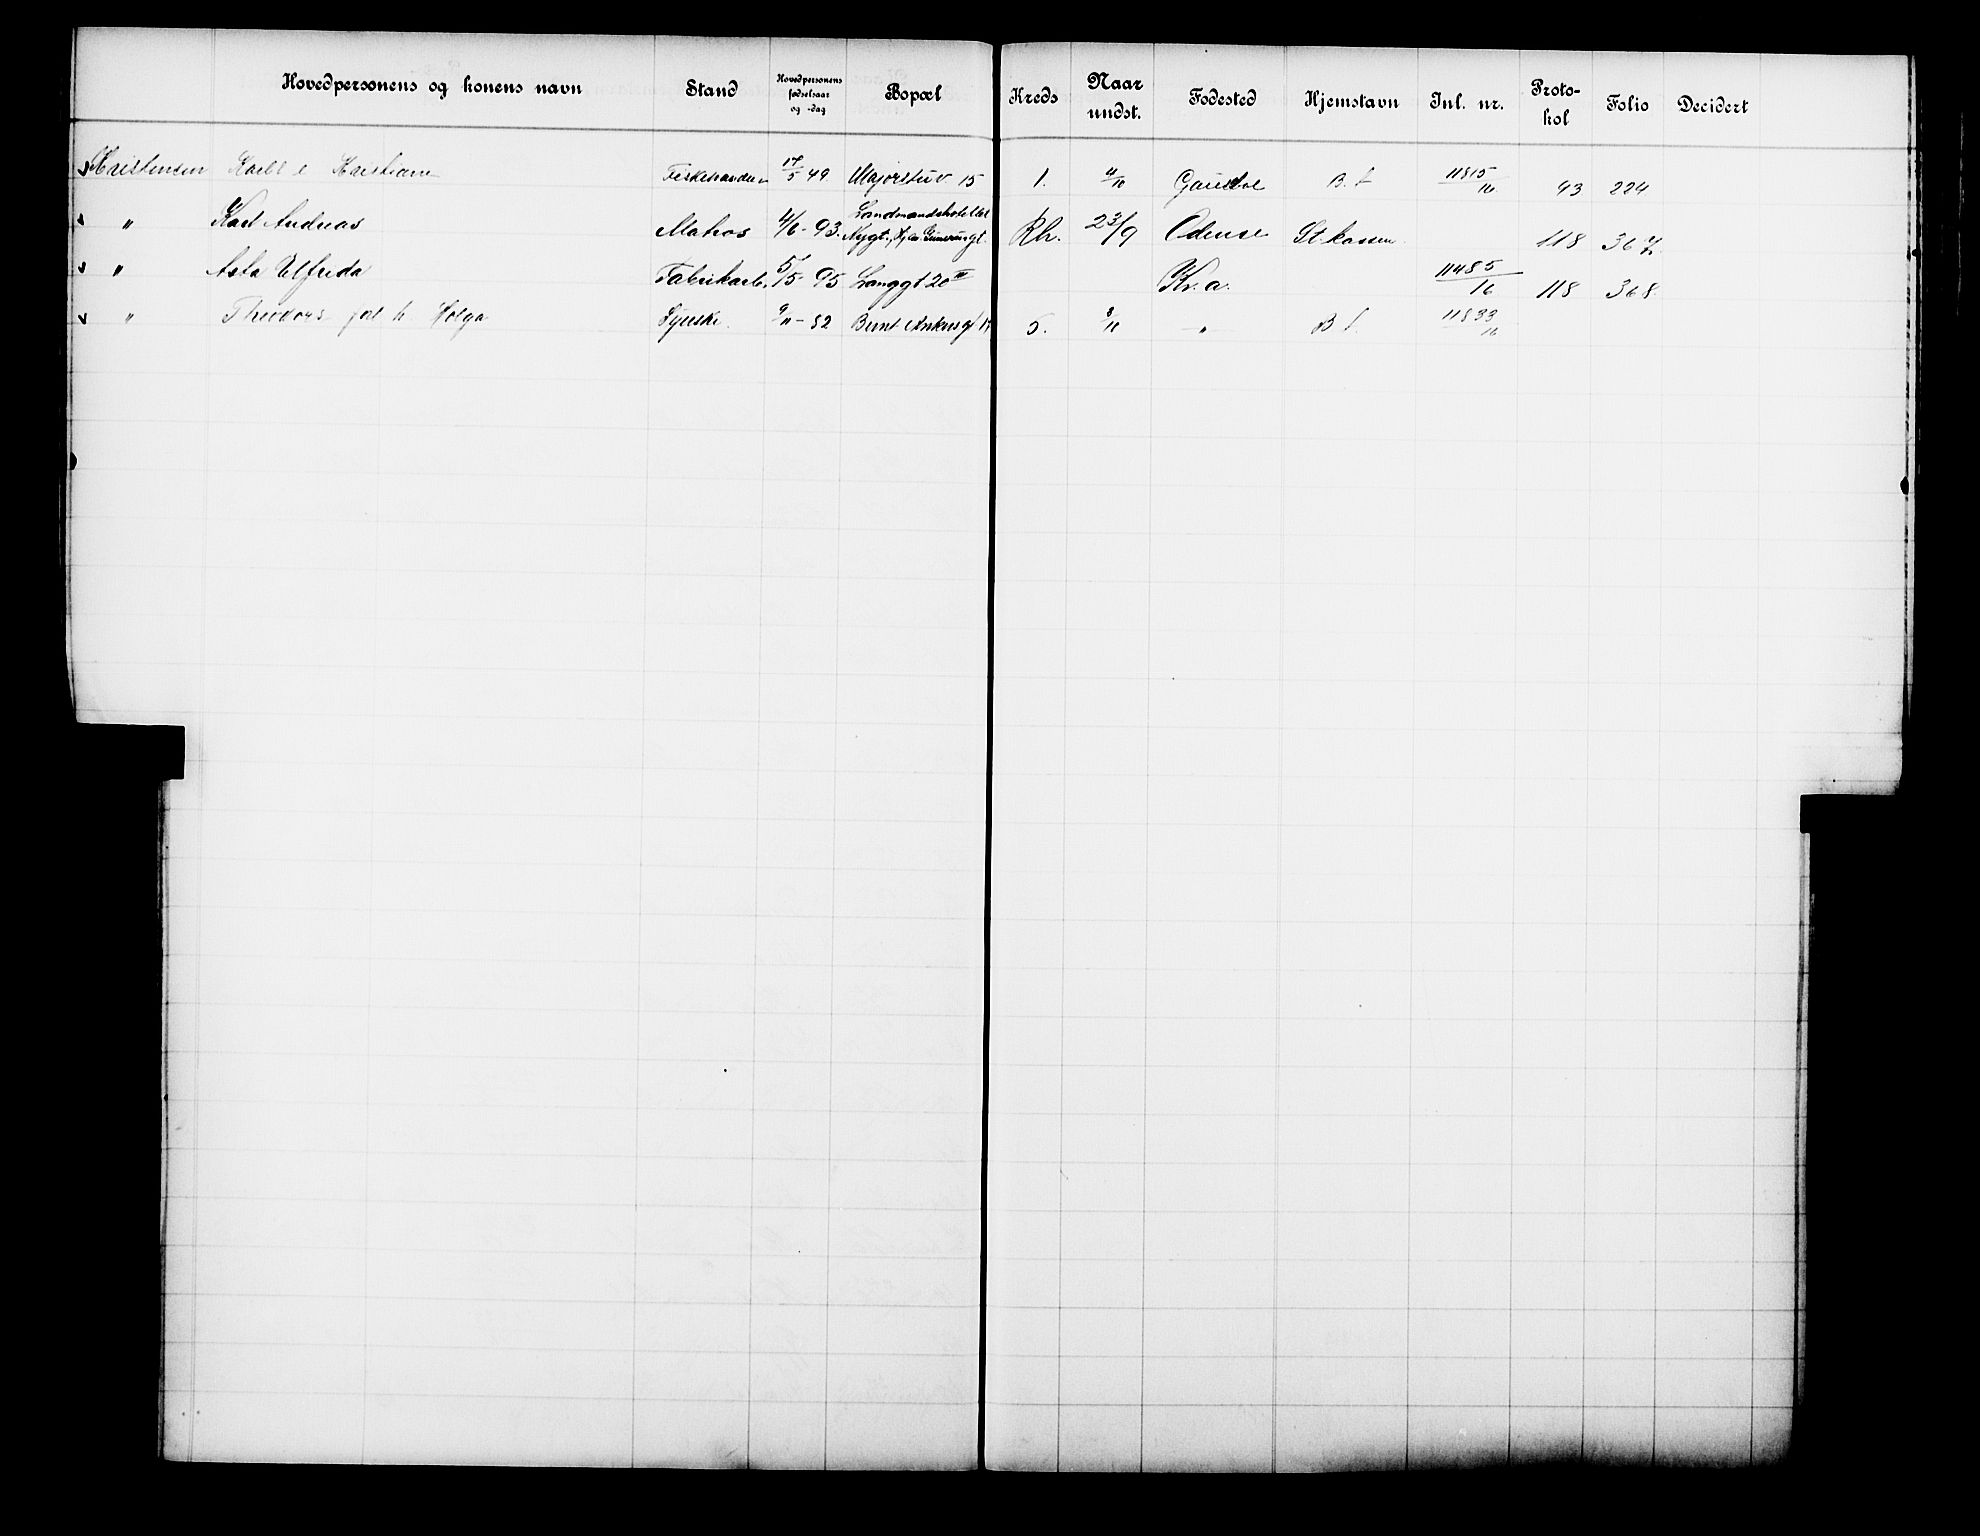 Hovedpersonens og konens navn Stand Hovedpersonens fødselsaar og -dag Bopæl Kreds Naar undst. Fødested Hjemstavn Inl. nr. Protokol Folio Decidert
Kristensen Karl e Kristiane 17/5 49 Majorstuv 15 1. 4/10 B. f 11815/16 93 224
" Karl Andreas Matros 4/6 - 93. Landmandshotellet Nygt. Hj. av Rh. 23/9 Odense St. kassen. 118 367.
" Asta Elfrida Fabrikarb. 5/5 - 95 Langgt 20 III Kr.a. 11485/16 118 368.
" Theodora født h Helga Syerske. 9/11 - 82 Bernt Ankersgt 17 5. 3/11 " B f. 11833/16